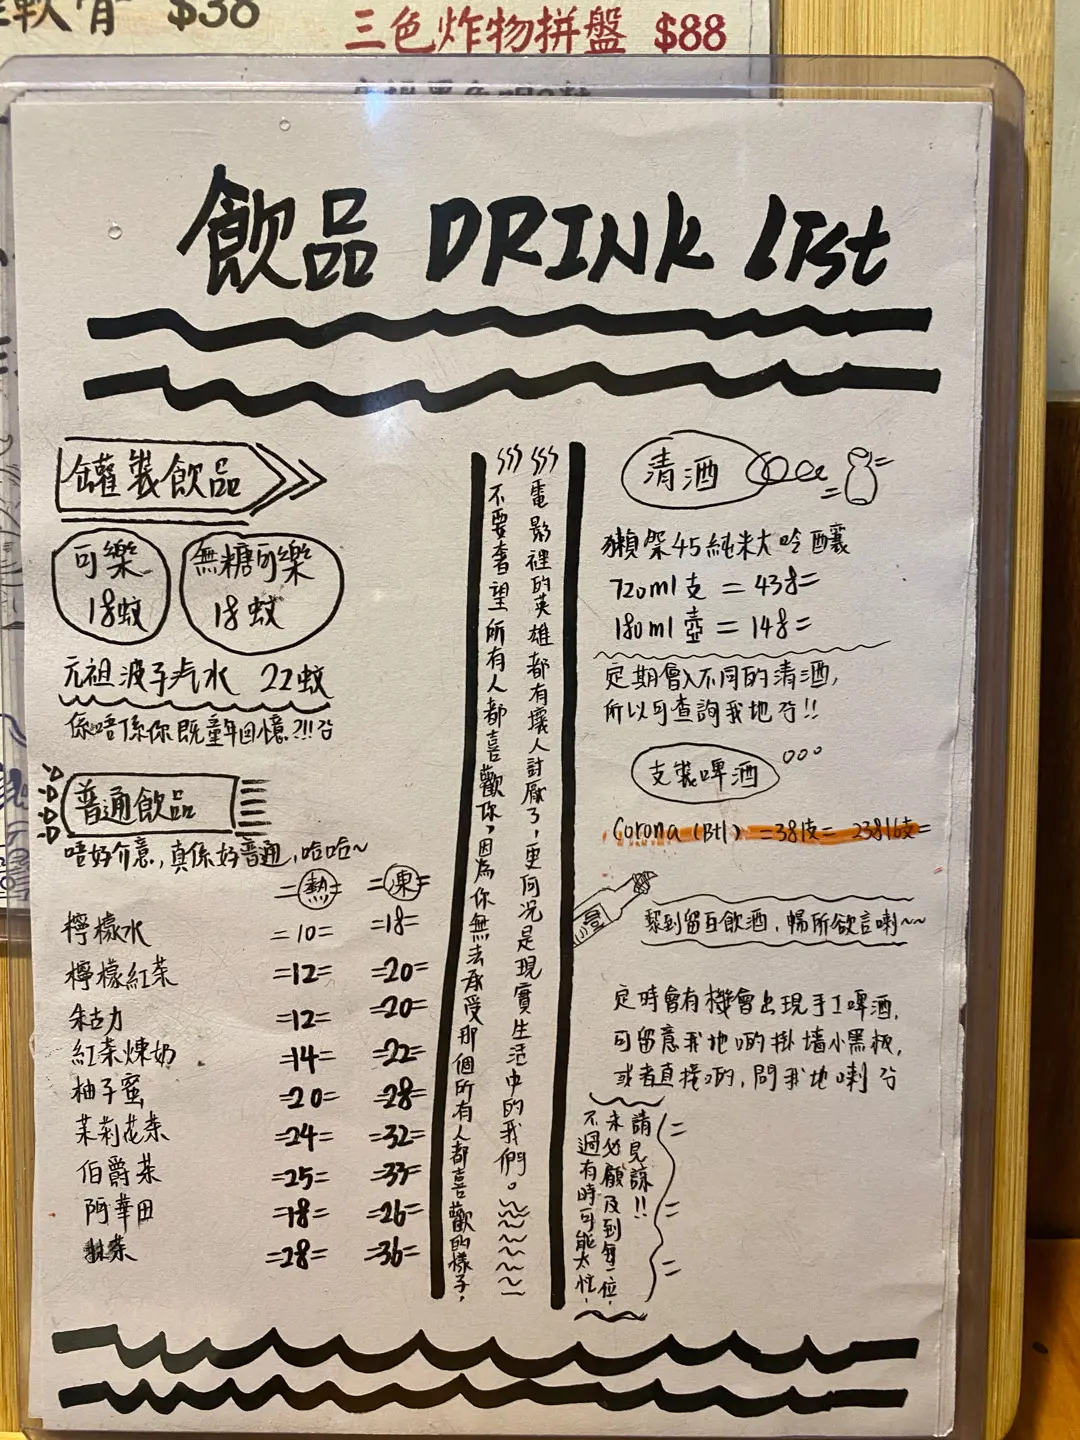 軟骨 $38
三色炸物拼盤 $88
飲品 DRINK LIst
罐裝飲品
可樂
18蚊
無糖可樂
18蚊
元祖波子汽水 22蚊
係唔係你既童年回憶?!!
普通飲品
唔好介意,真係好普通,哈哈~
=熱= =凍=
檸檬水 =10= =18=
檸檬紅茶 =12= =20=
朱古力 =12= =20=
紅茶煉奶 =14= =22=
柚子蜜 =20= =28=
茉莉花茶 =24= =32=
伯爵茶 =25= =33=
阿華田 =18= =26=
抹茶 =28= =36=
電影裡的英雄都有壞人討厭了,更何況是現實生活中的我們。
不要奢望所有人都喜歡你,因為你無法承受那個所有人都喜歡的樣子,
清酒
獺祭45純米大吟釀
720ml支 = 438=
180ml壺 = 148=
定期會入不同的清酒,
所以可查詢我地!!
支裝啤酒
Corona (Btl) =381支= 23816支=
黎到留互飲酒,暢所欲言喇~~
定時會有機會出現手工啤酒,
可留意我地啲掛牆小黑板,
或者直接啲,問我地喇
不過有時可能太忙,
未必顧及到每一位,
請見諒!!